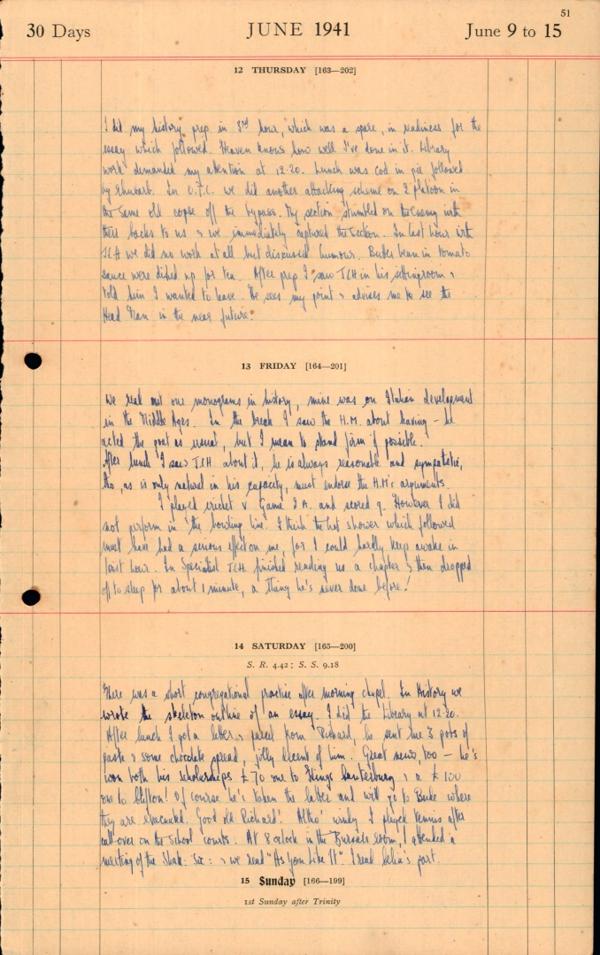 51
30 Days JUNE 1941 June 9 to 15
12 THURSDAY [163—202]
I did my history prep in 3rd hour, which was a spare, in readiness for the
essay which followed. Heaven knows how well I've done in it. Library
work demanded my attention at 12.20. Lunch was cod in pie followed
by rhubarb. In O.T.C. we did another attacking scheme on 2 platoon in
the same old copse off the bypass. My section stumbled on the enemy with
their backs to us & we immediately captured the section. In last hour with
JCH we did no work at all but discussed humour. Butter beans in tomato
sauce were dished up for tea. After prep I saw JCH in his sittingroom &
told him I wanted to leave. He sees my point & advises me to see the
Head Man in the near future.
13 FRIDAY [164—201]
We read out our monograms in history, mine was on Italian development
in the Middle Ages. In the break I saw the H.M. about leaving – he
acted the part as usual, but I mean to stand firm if possible.
After lunch I saw JCH about it, he is always reasonable and sympathetic,
tho, as is only natural in his capacity, must endorse the H.M's arguments.
I played cricket v Game 2A. and scored 9. However I did
not perform in the bowling line. I think the hot shower which followed
must have had a serious effect on me, for I could hardly keep awake in
last hour. In Specialist JCH finished reading us a chapter & then dropped
off to sleep for about 1 minute, a thing he's never done before!
14 SATURDAY [165—200]
S. R. 4.42; S. S. 9.18
There was a short congregational practice after morning chapel. In History we
wrote the skeleton outline of an essay. I did the Library at 12.20.
After lunch I got a letter & parcel from Richard, he sent me 3 pots of
paste & some chocolate spread, jolly decent of him. Great news too – he's
won both his scholarships £70 one to Kings Canterbury & a £100
one to Clifton! Of course he's taken the latter and will go to Bude where
they are evacuated. Good old Richard! Altho' windy I played tennis after
call-over on the School courts. At 8 oclock in the Bursar's room, I attended a
meeting of the Shak. Soc: & we read "As You Like It". I read Celia's part.
15 Sunday [166—199]
1st Sunday after Trinity